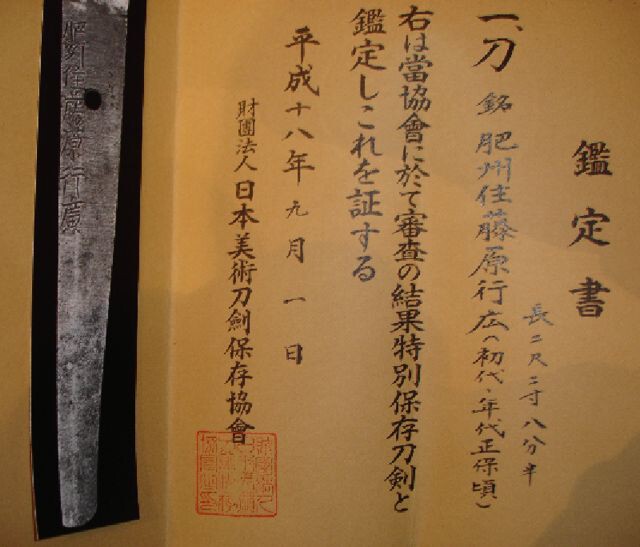 鑑定書
一、刀 銘 肥州住藤原行広(初代・年代正保頃)
長二尺二寸八分半
右は當協會に於て審査の結果特別保存刀剣と
鑑定しこれを証する
平成十八年元月一日
財團法人日本美術刀劍保存協會
肥州住藤原行廣